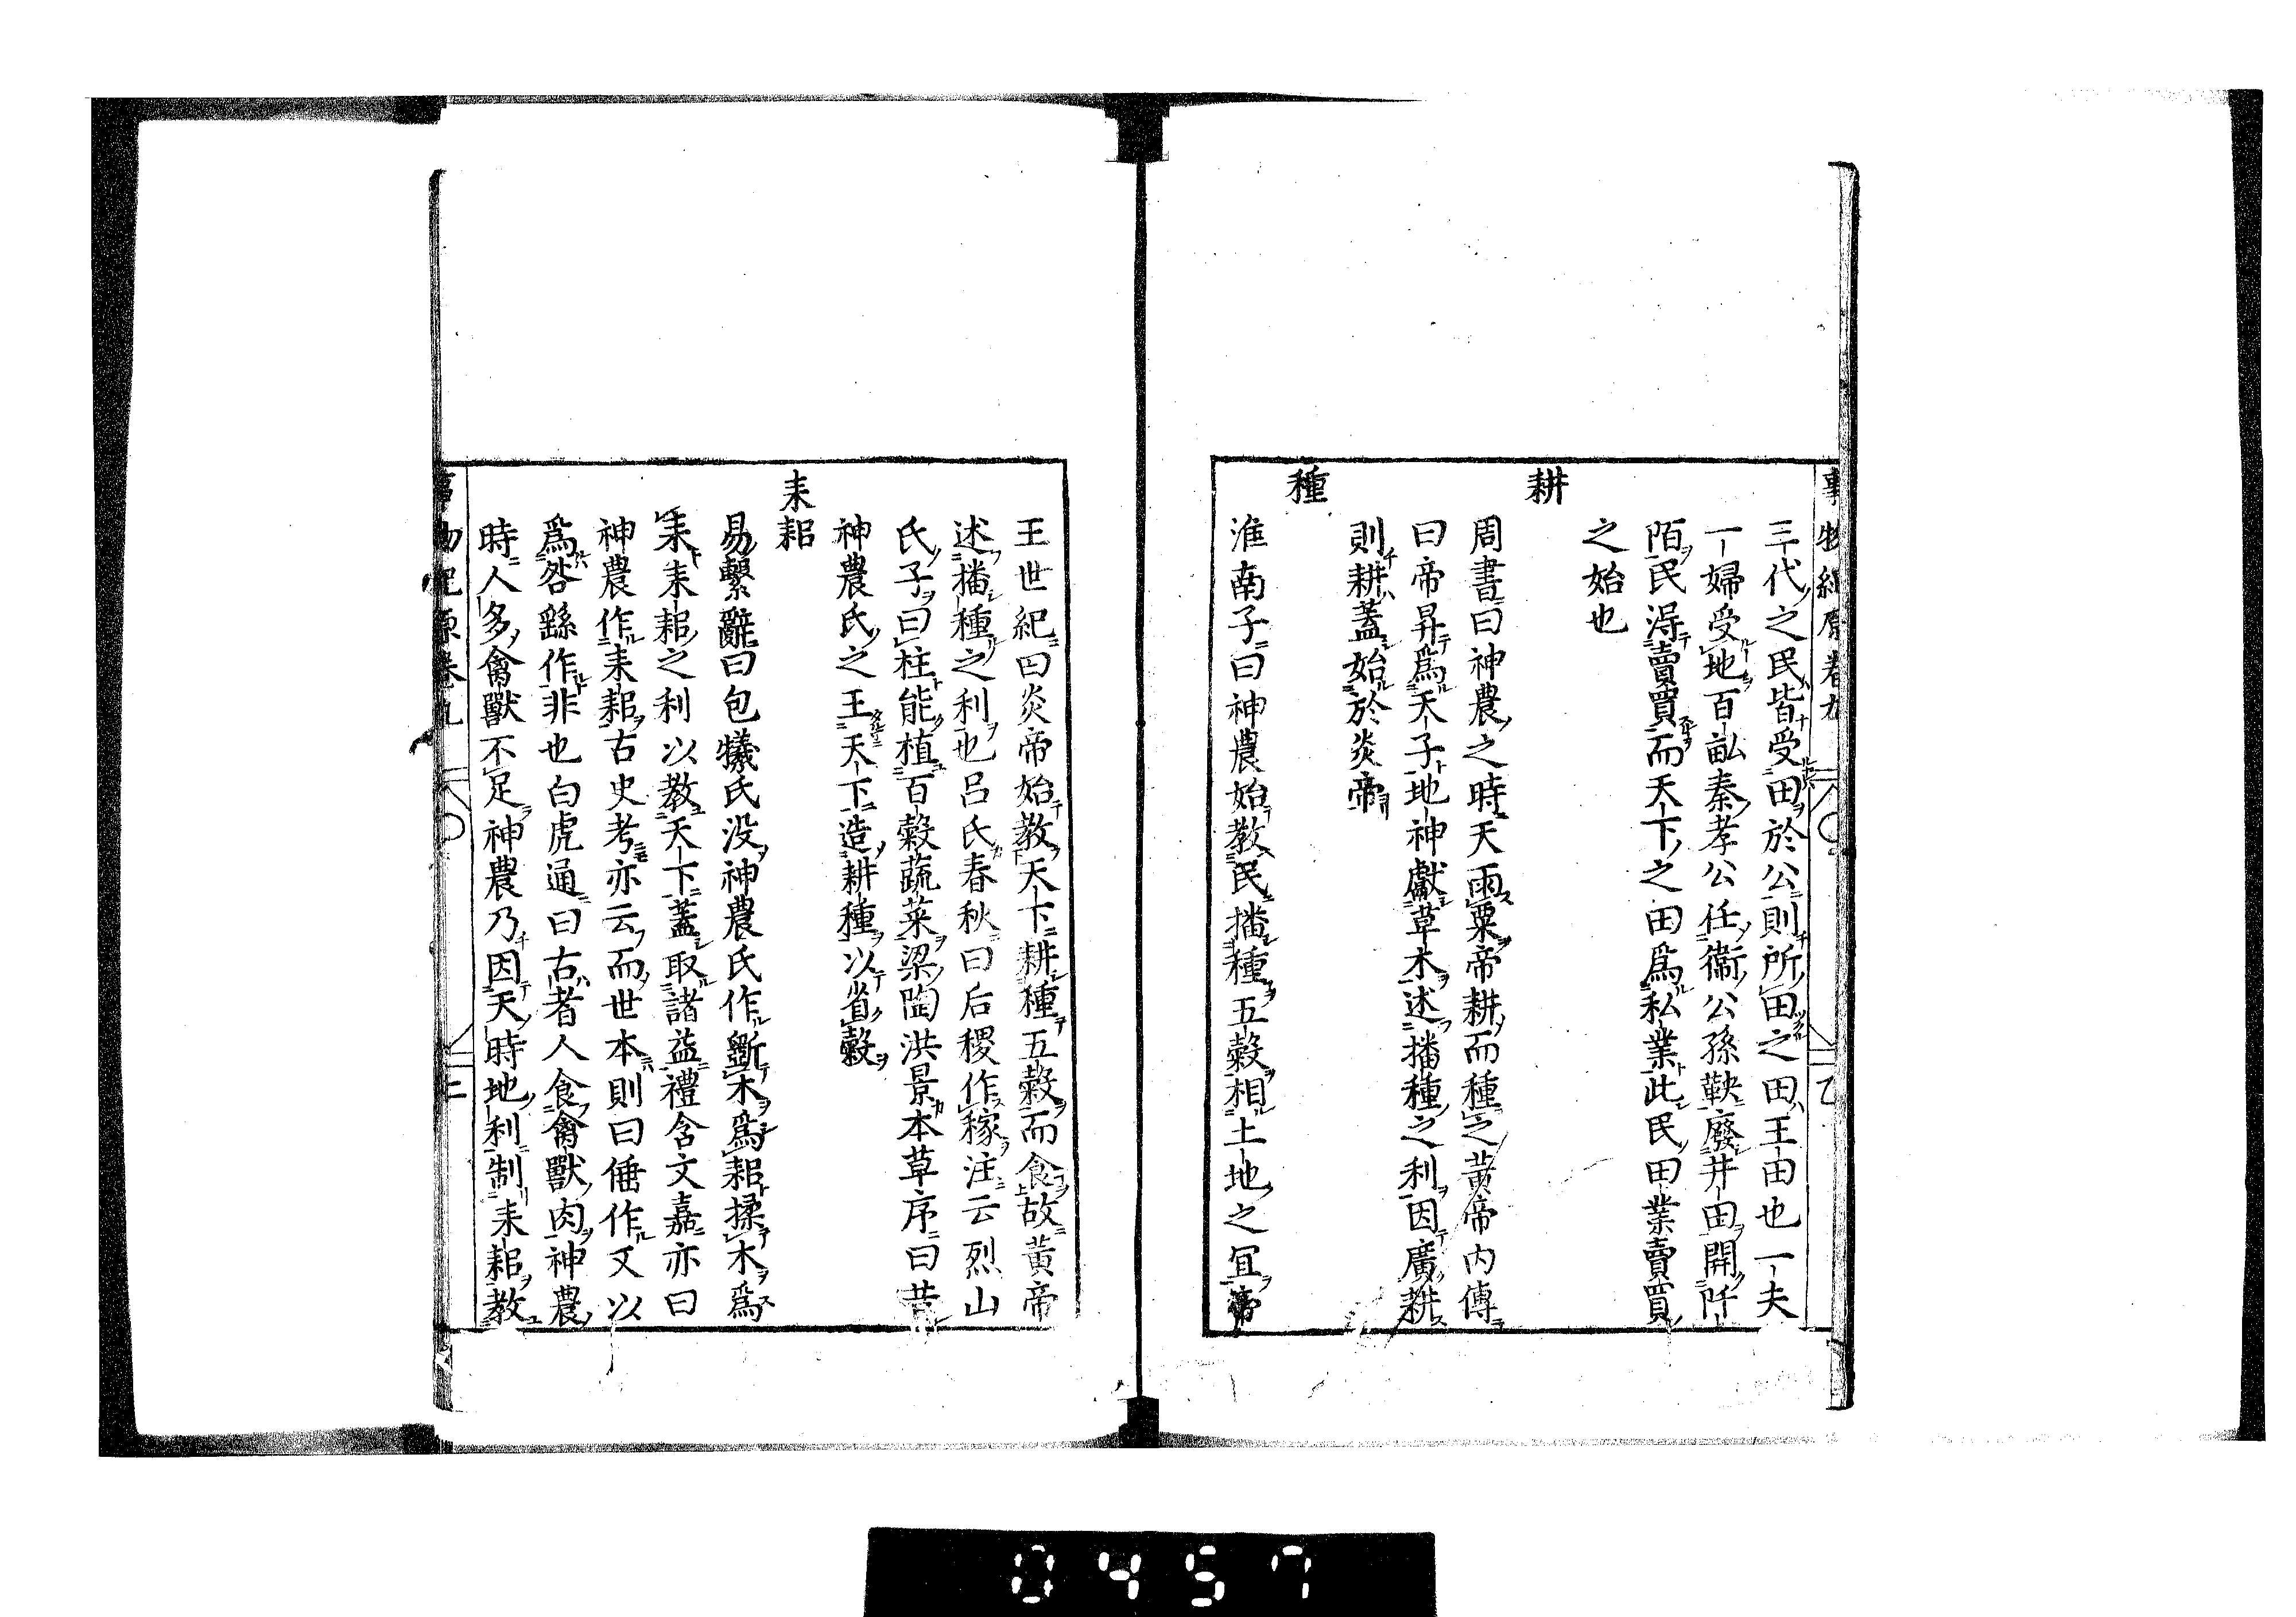 事物紀原卷九
三代之民皆受田於公則所田之田王田也一夫
一婦受地百畝秦孝公任衞公孫鞅廢井田開阡
陌民得賣買而天下之田爲私業此民田業賣買
之始也
耕
周書曰神農之時天雨粟帝耕而種之黃帝內傳
曰帝昇爲天子地神獻草木述播種之利因廣耕
則耕蓋始於炎帝
種
淮南子曰神農始教民播種五穀相土地之宜帝
王世紀曰炎帝始教天下耕種五穀而食故黃帝
述播種之利也呂氏春秋曰后稷作稼注云烈山
氏子曰柱能植百穀蔬菜梁陶洪景本草序曰昔
神農氏之王天下造耕種以省穀
耒耜
易繫辭曰包犧氏没神農氏作斲木爲耜揉木爲
耒耒耜之利以教天下蓋取諸益禮含文嘉亦曰
神農作耒耜古史考亦云而世本則曰倕作又以
爲咎繇作非也白虎通曰古者人食禽獸肉神農
時人多禽獸不足神農乃因天時地利制耒耜教
事物紀原卷九
0457